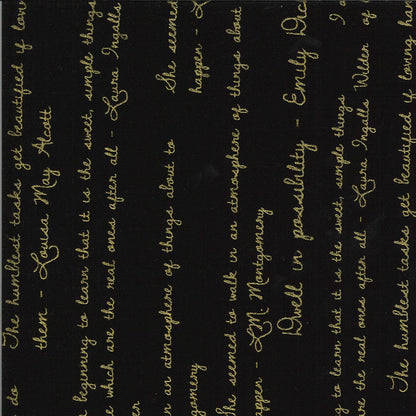 do The humblest tasks get beautified if lovi
them - Louisa May Alcott
beginning to learn that it is the sweet, simple things
e which are the real ones after all - Laura Ingalls
er
n an atmosphere of things about to She seemed
gomery happen - L
She seemed to walk in an atmosphere of things about
appen - LM Montgomery
Dwell in possibility - Emily Dic
g to learn that it is the sweet, simple things I a
re the real ones after all - Laura Ingalls Wilder of
The humblest tasks get beautified if loving han